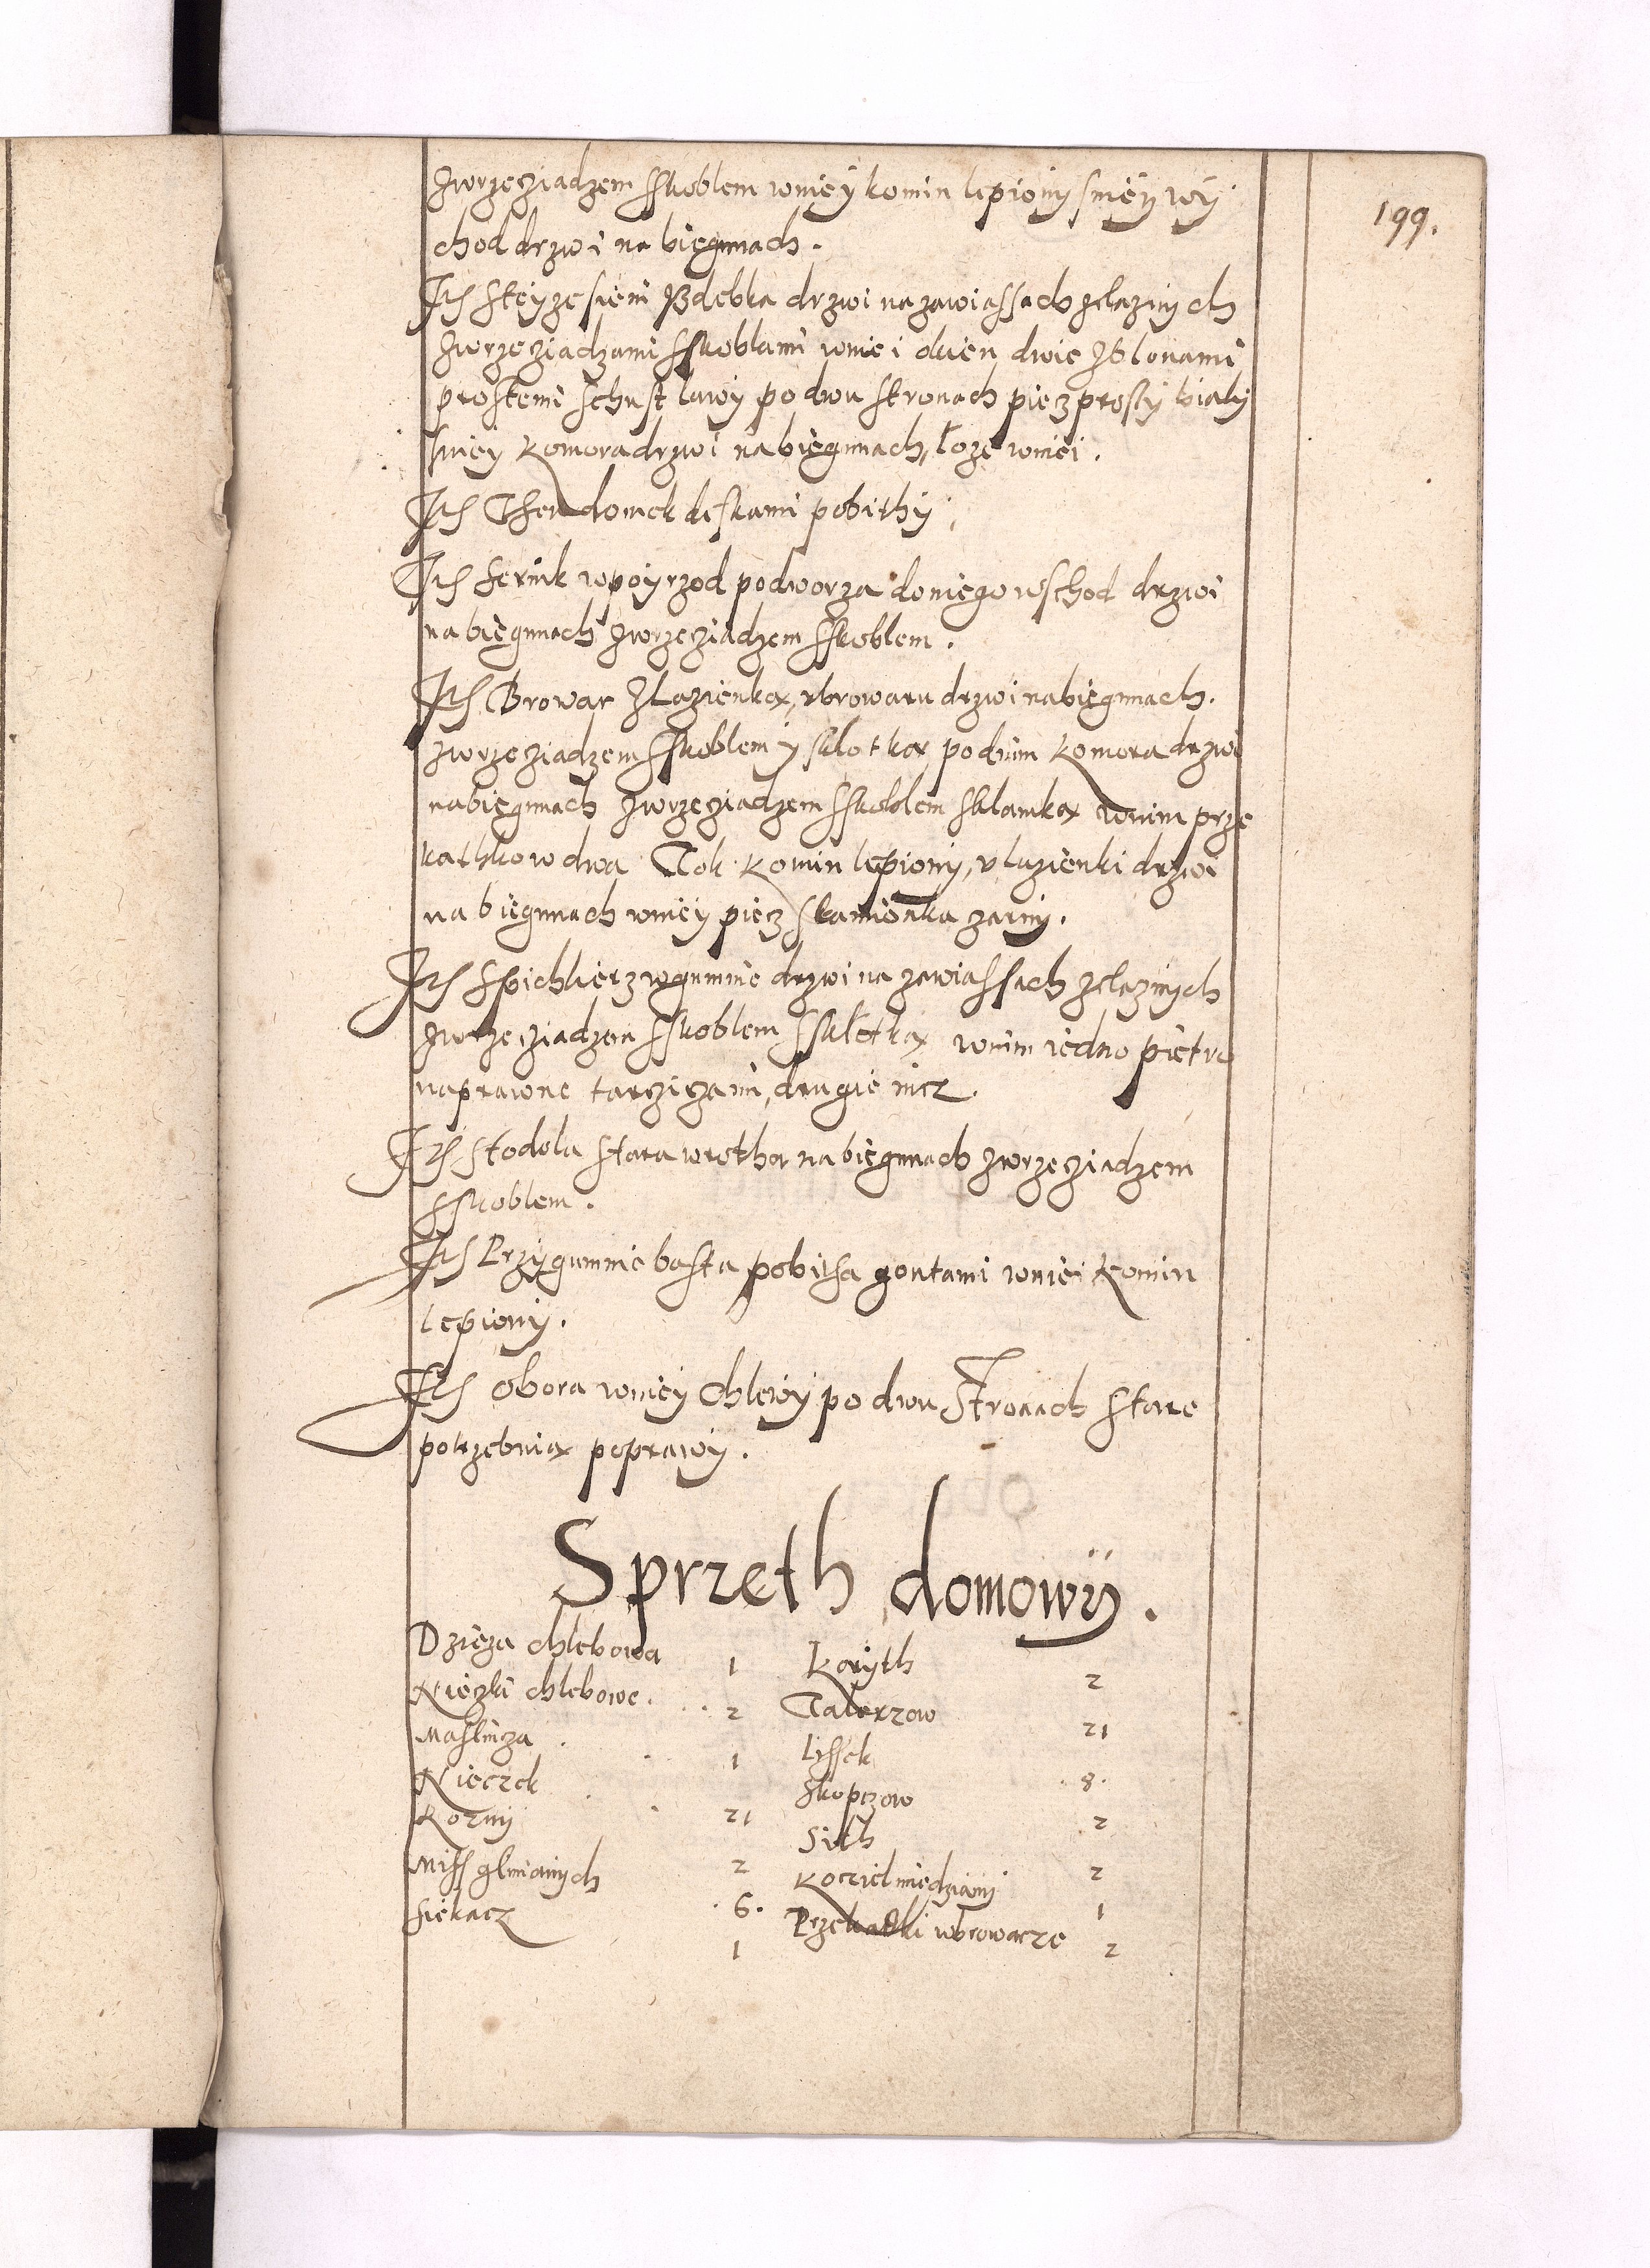 199.
zwrzecziadzem sskoblem wnieÿ komin lepionÿ snieÿ wÿ
chod drzwi na biegunach.
Its steÿze sieni Izdebka drzwi na zawiassach zelaznÿch
zwrzecziadzami sskoblami wniei okien dwie zblonami
prostemi schust lawÿ po dwu stronach piecz prostÿ bialÿ
snieÿ komora drzwi na biegunach, loze wniei.
Its Then domek deskami pobithÿ,
Its Sernik wpoÿrzod podworza do niego wschod drzwi
na biegunach zwrzecziadzem sskoblem.
Its Browar zLazienka, v browaru drzwi na biegunach.
zwrzecziadzem sskoblem ÿ sklotka, podnim komora drzwi
na biegunach zwrzecziadzem sskoblem sklamka wnim prze
kathkow dwa Tok komin lepionÿ, v lazienki drzwi
na biegunach wnieÿ piecz skamienka zarnÿ.
Its Spichlierz wgumnie drzwi na zawiassach zelaznÿch
zwrzecziadzem sskoblem ssklotka wnim iedno pietro
naprawne tarcziczami, drugie nicz.
Its stodola stara wrotha na biegunach zwrzecziadzem
sskoblem.
Its Przÿ gumnie basta pobitha gontami wniei komin
lepionÿ.
Its obora wnieÿ Chlewÿ po dwu Stronach stare
potrzebuia poprawÿ.
Sprzeth domowÿ.
Dzieza chlebowa 1 Korÿth 2
Nieczki chlebowe. 2 Talerzow 21
Maslnicza. 1 Lÿssek 8.
Nieczek 21 Skopczow 2
Konwÿ 2 Sith 2
Miss glinianÿch 6. Kocziel miedzianÿ 1
Siekacz 1 Przekadki wbrowarze 2